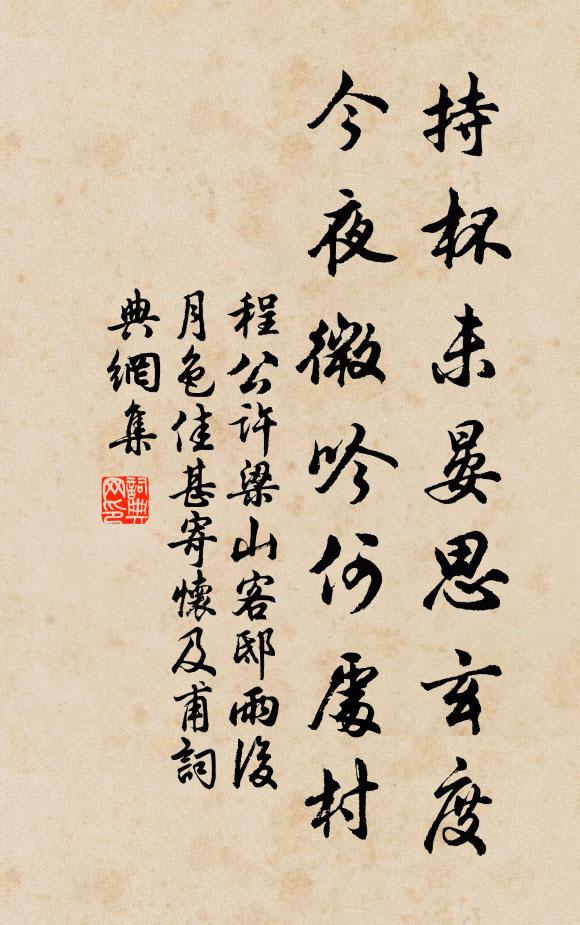 持杯未晏思玄度
今夜微吟何處村
程公许梁山客邸雨後
月色佳甚寄懷及甫詞
典網集
詞典
网印